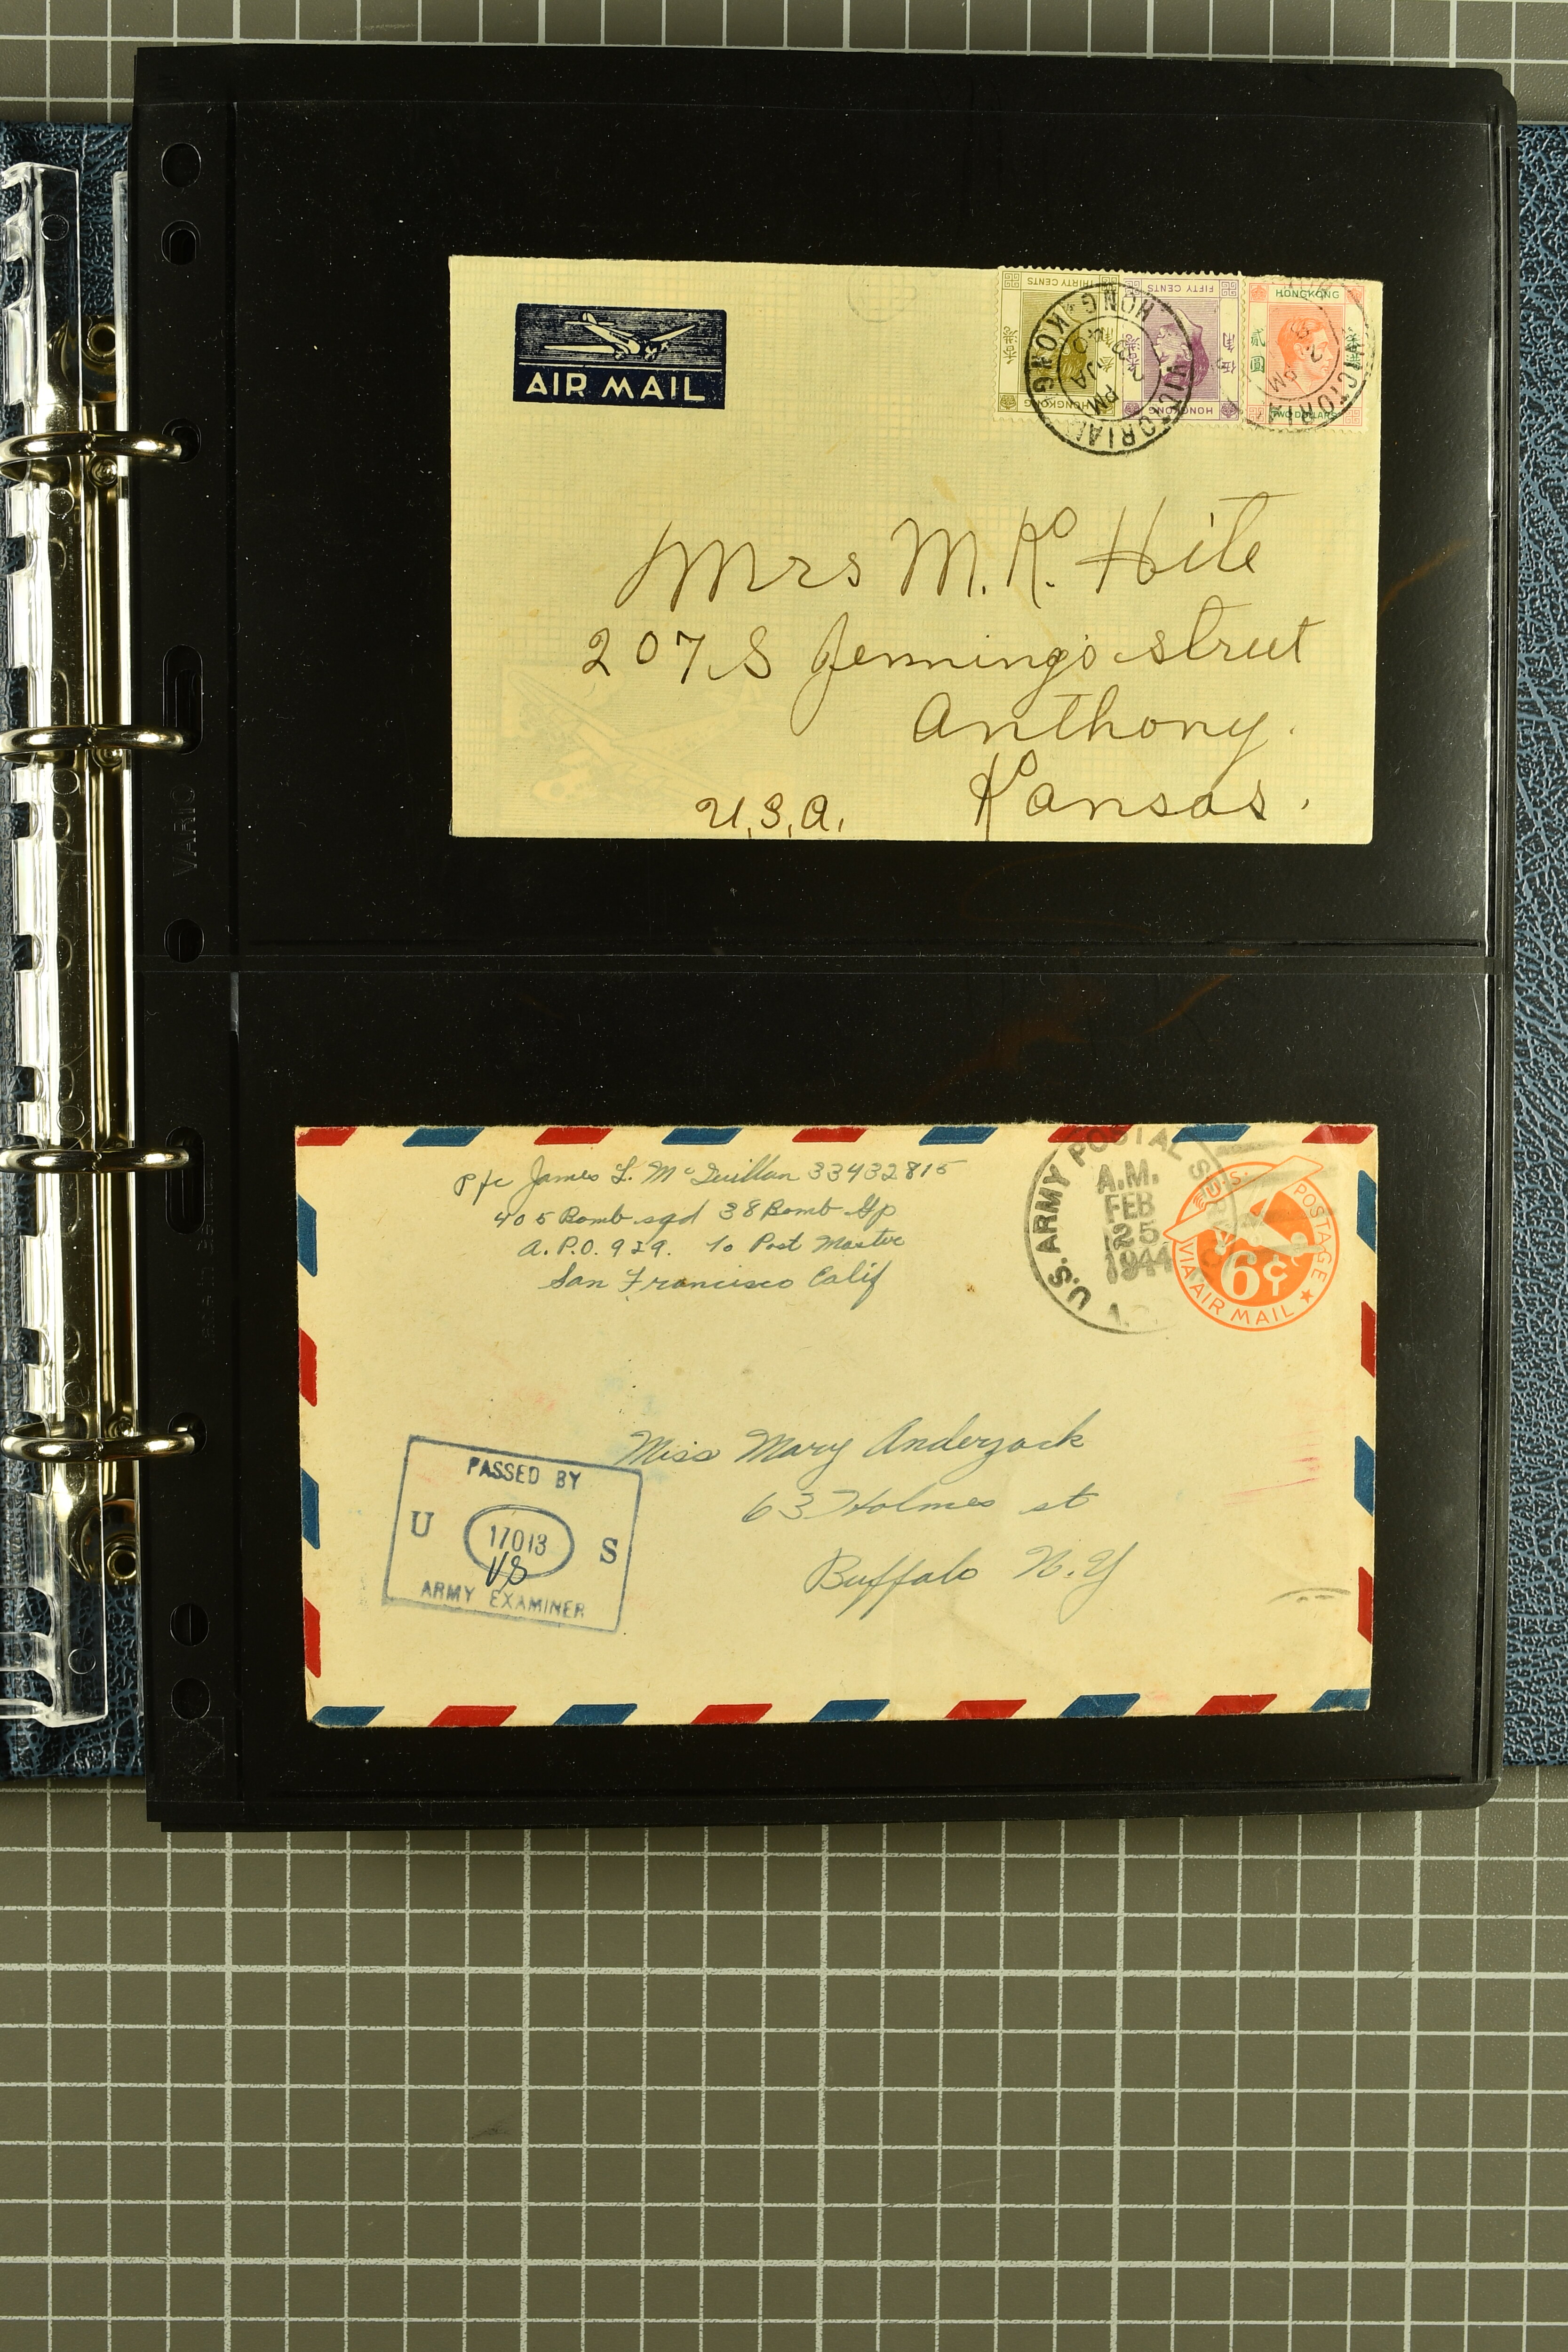 AIR MAIL
THIRTY CENTS
HONGKONG
FIFTY CENTS
HONGKONG
HONGKONG
貳圓
TWO DOLLARS
VICTORIA
HONG KONG
PM
JA
40
VICTORIA
PM
Mrs M. K. Hite
207 S Jennings street
Anthony.
Kansas.
U.S.A.
VARIO
Pfc James L. McQuillan 33432815
405 Bomb sqd 38 Bomb Gp
A.P.O. 929. To Post Master
San Francisco Calif
U.S. ARMY POSTAL SERVICE
A.M.
FEB
25
1944
U.S. POSTAGE
6¢
VIA AIR MAIL
Miss Mary Anderzack
63 Holmes st
Buffalo N.Y
PASSED BY
U 17013 S
ARMY EXAMINER